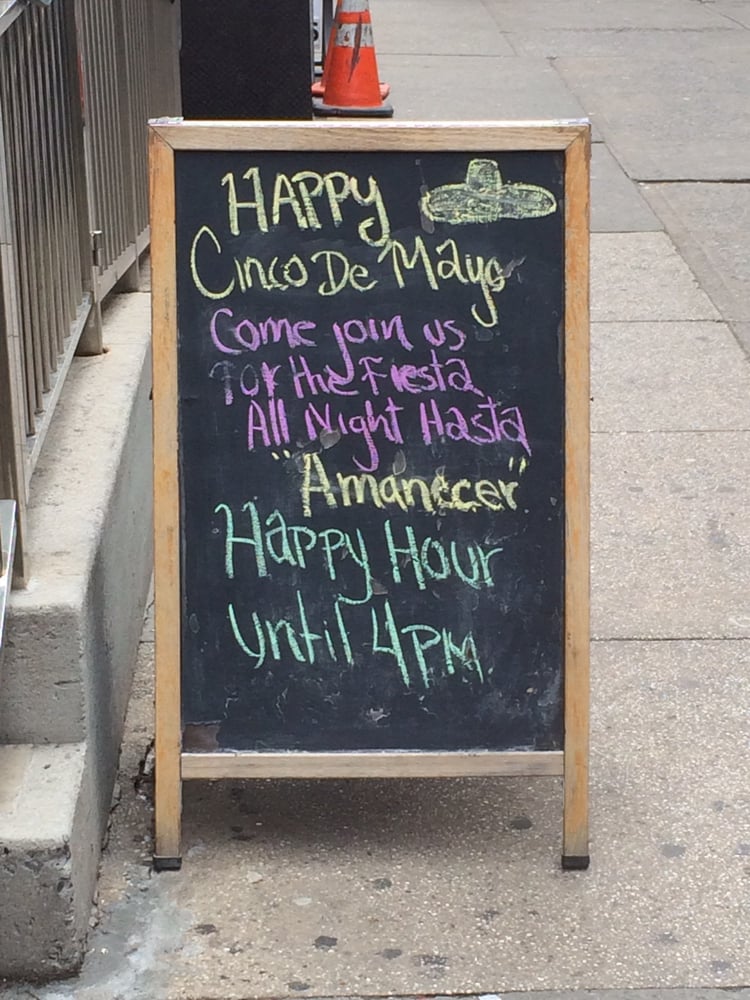 HAPPY
Cinco De Mayo
Come join us
for the Fiesta
All Night Hasta
"Amanecer"
Happy Hour
until 4PM.